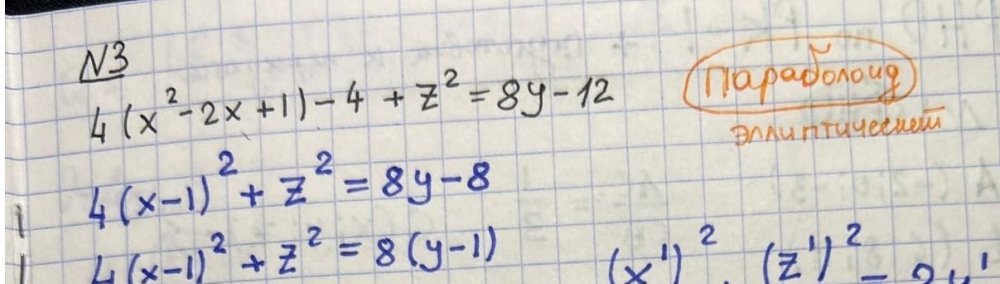 N3
4(x²-2x+1)-4+z²=8y-12
Параболоид
эллиптический
4(x-1)²+z²=8y-8
4(x-1)²+z²=8(y-1)
(x')² (z')² = 2y'